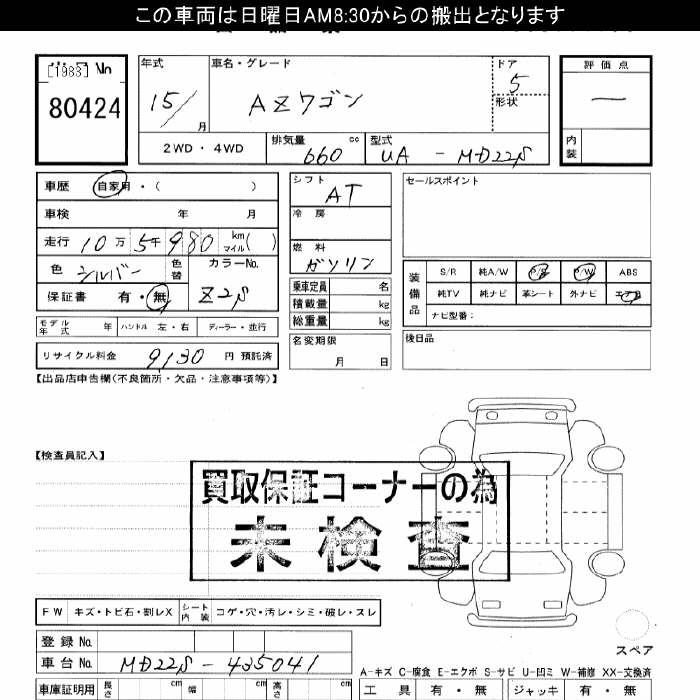 この車両は日曜日AM8:30からの搬出となります
[1983] No
80424
年式 車名・グレード ドア 評価点
15/月 AZワゴン 5 一
形状
2WD・4WD 排気量 660 cc 型式 UA - MD22S 内装
車歴 自家用・( ) シフト AT セールスポイント
車検 年 月 冷房
走行 10万 5千 980 km マイル( ) 燃料 ガソリン
色 シルバー 色替 カラーNo. Z2S
保証書 有・無
乗車定員 名
積載量 kg
総重量 kg
装備品 S/R 純A/W P/S P/W ABS
純TV 純ナビ 革シート 外ナビ エアB
ナビ型番:
モデル年式 年 ハンドル 左・右 ディーラー・並行
名変期限 月 日
後日品
リサイクル料金 9130 円 預託済
【出品店申告欄(不良箇所・欠品・注意事項等)】
【検査員記入】
買取保証コーナーの為
未検査
FW キズ・トビ石・割レX シート内装 コゲ・穴・汚レ・シミ・破レ・スレ
スペア
登録 No.
車台 No. MD22S-435041
A-キズ C-腐食 E-エクボ S-サビ U-凹ミ W-補修 XX-交換済
車庫証明用 長さ cm 幅 cm 高さ cm 工具 有・無 ジャッキ 有・無